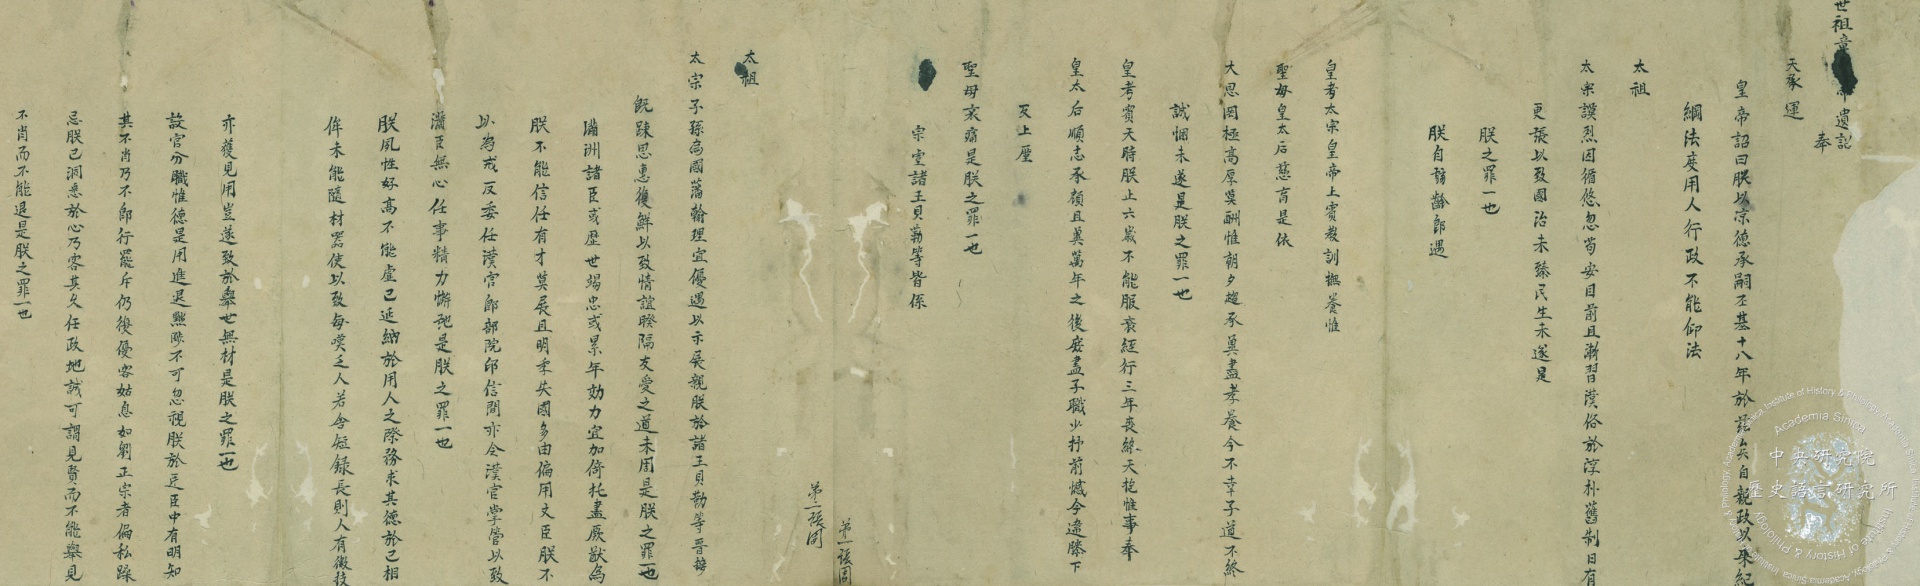 世祖章皇帝遺詔
奉
天承運
皇帝詔曰朕以凉德承嗣丕基十八年於茲矣自親政以來紀
綱法度用人行政不能仰法
太祖
太宗謨烈因循悠忽苟安目前且漸習漢俗於淳朴舊制日有
更張以致國治未臻民生未遂是
朕之罪一也
朕自弱齡即遇
皇考太宗皇帝上賓教訓撫養惟
聖母皇太后慈育是依
大恩罔極高厚莫酬惟朝夕趨承冀盡孝養今不幸子道不終
誠悃未遂是朕之罪一也
皇考賓天時朕上六歲不能服衰絰行三年喪終天抱惟事奉
皇太后順志承顏且冀萬年之後庶盡子職少抒前憾今違膝下
反上廑
聖母哀痛是朕之罪一也
宗室諸王貝勒等皆係
第一張同
第一張同
太祖
太宗子孫為國藩翰理宜優遇以示展親朕於諸王貝勒等晉接
既踈恩惠復鮮以致情誼睽隔友愛之道未周是朕之罪一也
滿洲諸臣或歷世竭忠或累年効力宜加倚托盡厥猷為
朕不能信任有才莫展且明季失國多由偏用文臣朕不
以為戒反委任漢官即部院印信間亦令漢官掌管以致
滿臣無心任事精力懈弛是朕之罪一也
朕夙性好高不能虛己延納於用人之際務求其德於己相
侔未能隨材器使以致每嘆乏人若舍短錄長則人有微技
亦獲見用豈遂致於舉世無材是朕之罪一也
設官分職惟德是用進退黜陟不可忽視朕於廷臣中有明知
其不肖乃不即行罷斥仍復優容姑息如劉正宗者偏私躁
忌朕已洞悉於心乃容其久任政地誠可謂見賢而不能舉見
不肖而不能退是朕之罪一也
中央研究院
歷史語言研究所
Academia Sinica
Institute of History & Philology